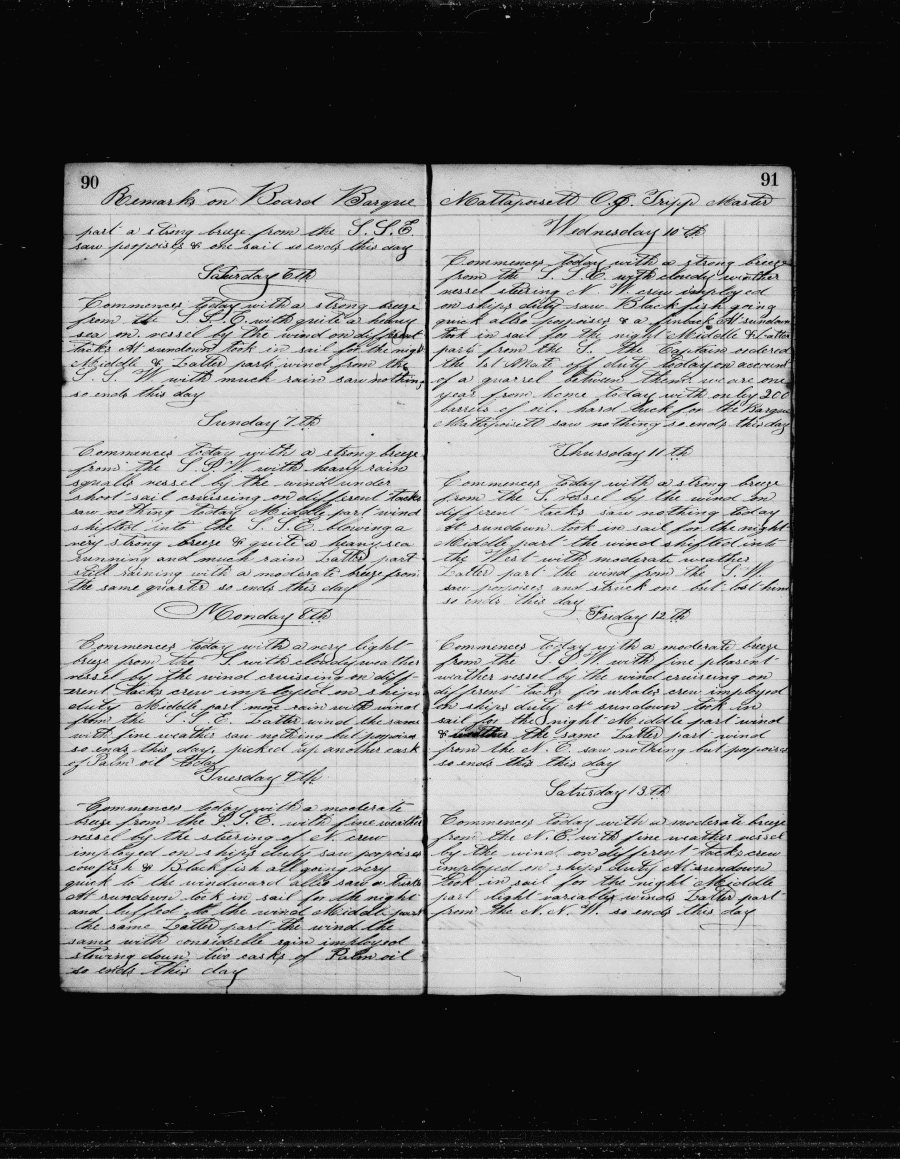 90
Remarks on Board Barque
part a strong breeze from the S.S.E.
saw popoises & one sail so ends this day
Saturday 6th
Commences today with a strong breeze
from the S.S.E. with quite a heavy
sea on vessel by the wind on diffrent
tacks At sundown took in sail for the night
Middle & Latter parts wind from the
S.S.W with much rain saw nothing
so ends this day
Sunday 7th
Commences today with a strong breeze
from the S.S.W with heavy rain
squalls vessel by the wind under
short sail cruiseing on diffrent tacks
saw nothing today Middle part wind
shifted into the S.S.E. blowing a
very strong breeze & quite a heavy sea
running and much rain Latter part
still raining with a moderate breeze from
the same quarter so ends this day
Monday 8th
Commences today with a very light
breeze from the S with cloudy weather
vessel by the wind cruiseing on diff-
erent tacks crew imployed on ships
duty Middle part more rain with wind
from the S.S.E. Latter wind the same
with fine weather saw nothing but popoises
so ends this day. picked up another cask
of Palm oil today
Tuesday 9th
Commences today with a moderate
breeze from the S.S.E. with fine weather
vessel by the steering of N. crew
imployed on ships duty saw popoises
cowfish & Blackfish all going very
quick to the windward also saw a
At sundown took in sail for the night
and luffed to the wind Middle part
the same Latter part the wind the
same with considerble rain imployed
stowing down two casks of Palm oil
so ends this day
91
Mattapoisett O.G. Tripp Master
Wednesday 10th
Commences today with a strong breeze
from the S.S.E. with cloudy weather
vessel steering N.W crew imployed
on ships duty saw Blackfish going
quick also popoises & a finback At sundown
took in sail for the night Middle & Latter
parts from the S. the Captain ordered
the 1st Mate of duty today on account
of a quarrel between them. we are one
year from home today with onley 200
berrels of oil. hard luck for the Barque
Mattapoisett saw nothing so ends this day
Thursday 11th
Commences today with a strong breeze
from the S. vessel by the wind on
different tacks saw nothing today
At sundown took in sail for the night
Middle part the wind shifted into
the West with moderate weather
Latter part the wind from the S.W.
saw popoises and struck one but lost him
so ends this day
Friday 12th
Commences today with a moderate breeze
from the S.S.W. with fine pleasent
weather vessel by the wind cruiseing on
diffrent tacks for whales crew imployed
on ships duty At sundown took in
sail for the night Middle part wind
& weather the same Latter part wind
from the N.E. saw nothing but popoises
so ends this this day
Saturday 13th
Commences today with a moderate breeze
from the N.E. with fine weather vessel
by the wind on diffrent tacks crew
imployed on ships duty At sundown
took in sail for the night Middle
part light variable winds Latter part
from the N.N.W. so ends this day